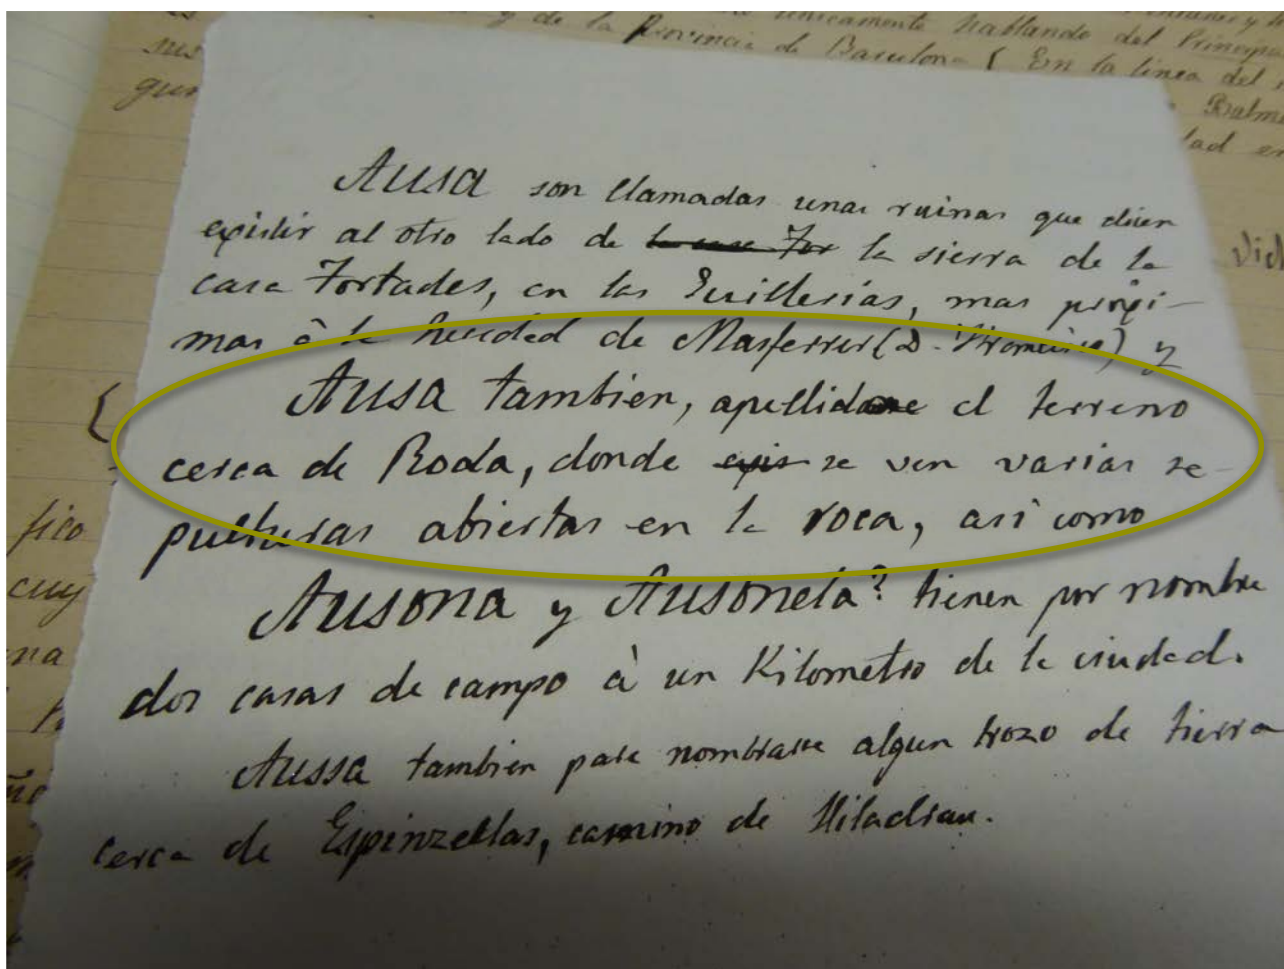 únicamente hablando del
y de la Provincia de Barcelona ( En la linea del
sus
gun
Ausa son llamadas unas ruinas que dicen
existir al otro lado de la casa Tor la sierra de la
casa Tortades, en las Guillerias, mas próxi-
mas â la heredad de Masferrer (D. ) y
Ausa tambien, apellidase el terreno
cerca de Roda, donde exis se ven varias se-
pulturas abiertas en la roca, asi como
Ausona y Ausoneta? tienen por nombre
dos casas de campo à un Kilometro de la ciudad.
Aussa tambien para nombrarse algun trozo de tierra
cerca de Espinzellas, camino de Viladrau.
fico
cuy
na